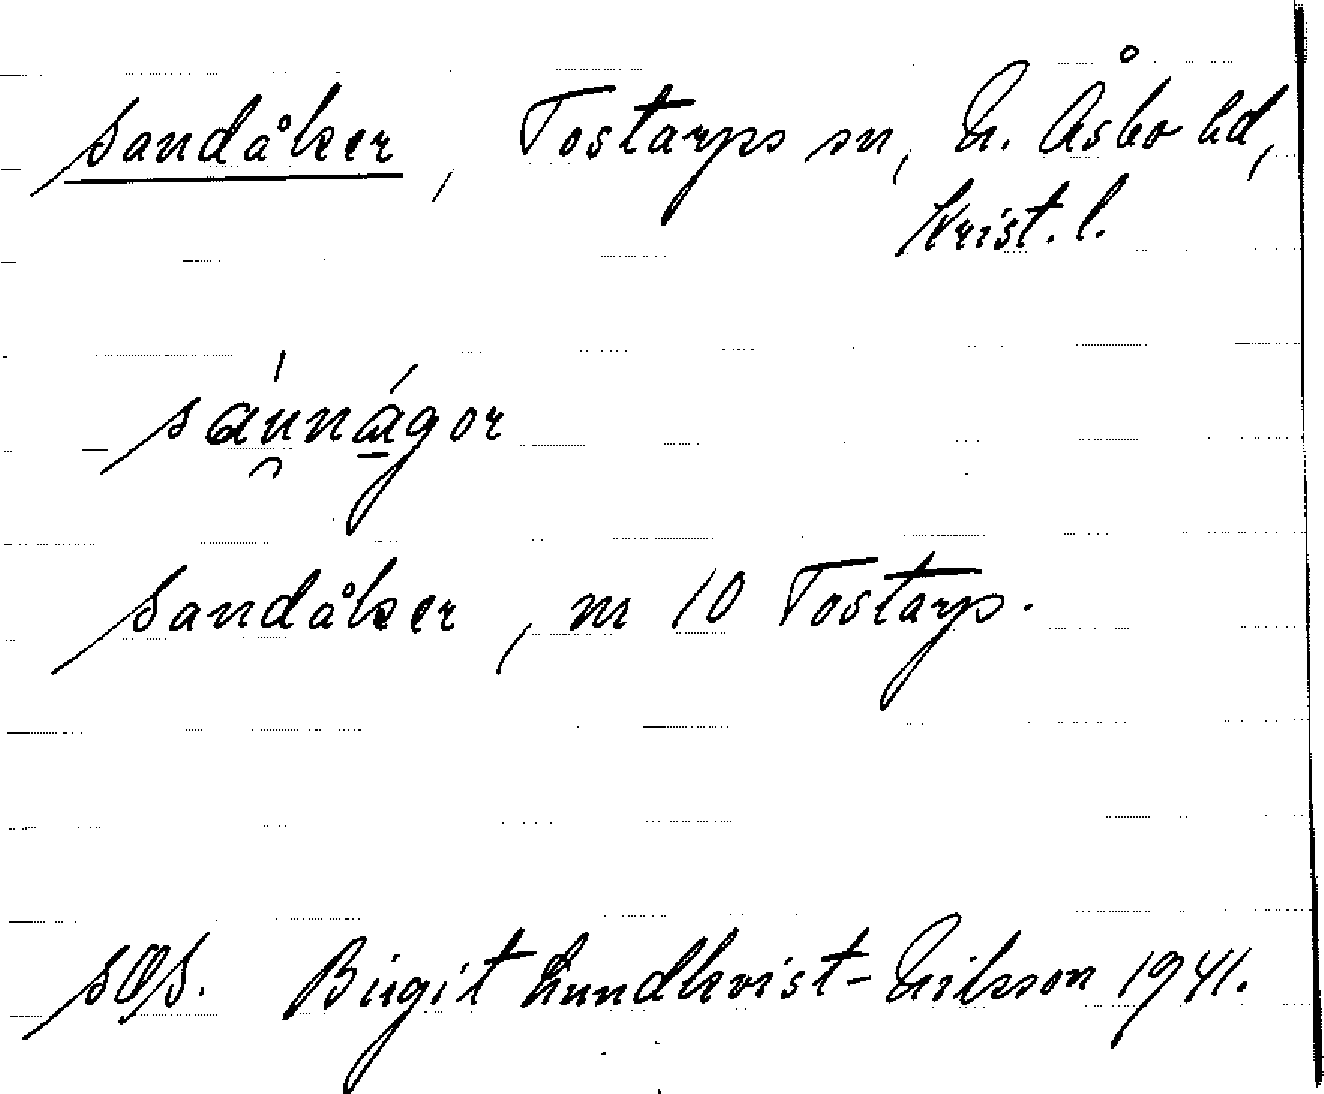 Sandåker, Tostarps sn, N. Åsbo hd,
Krist. l.
sannagor
Sandåker, m 10 Tostarp.
SOS. Birgit Lundkvist-Nilsson 1941.